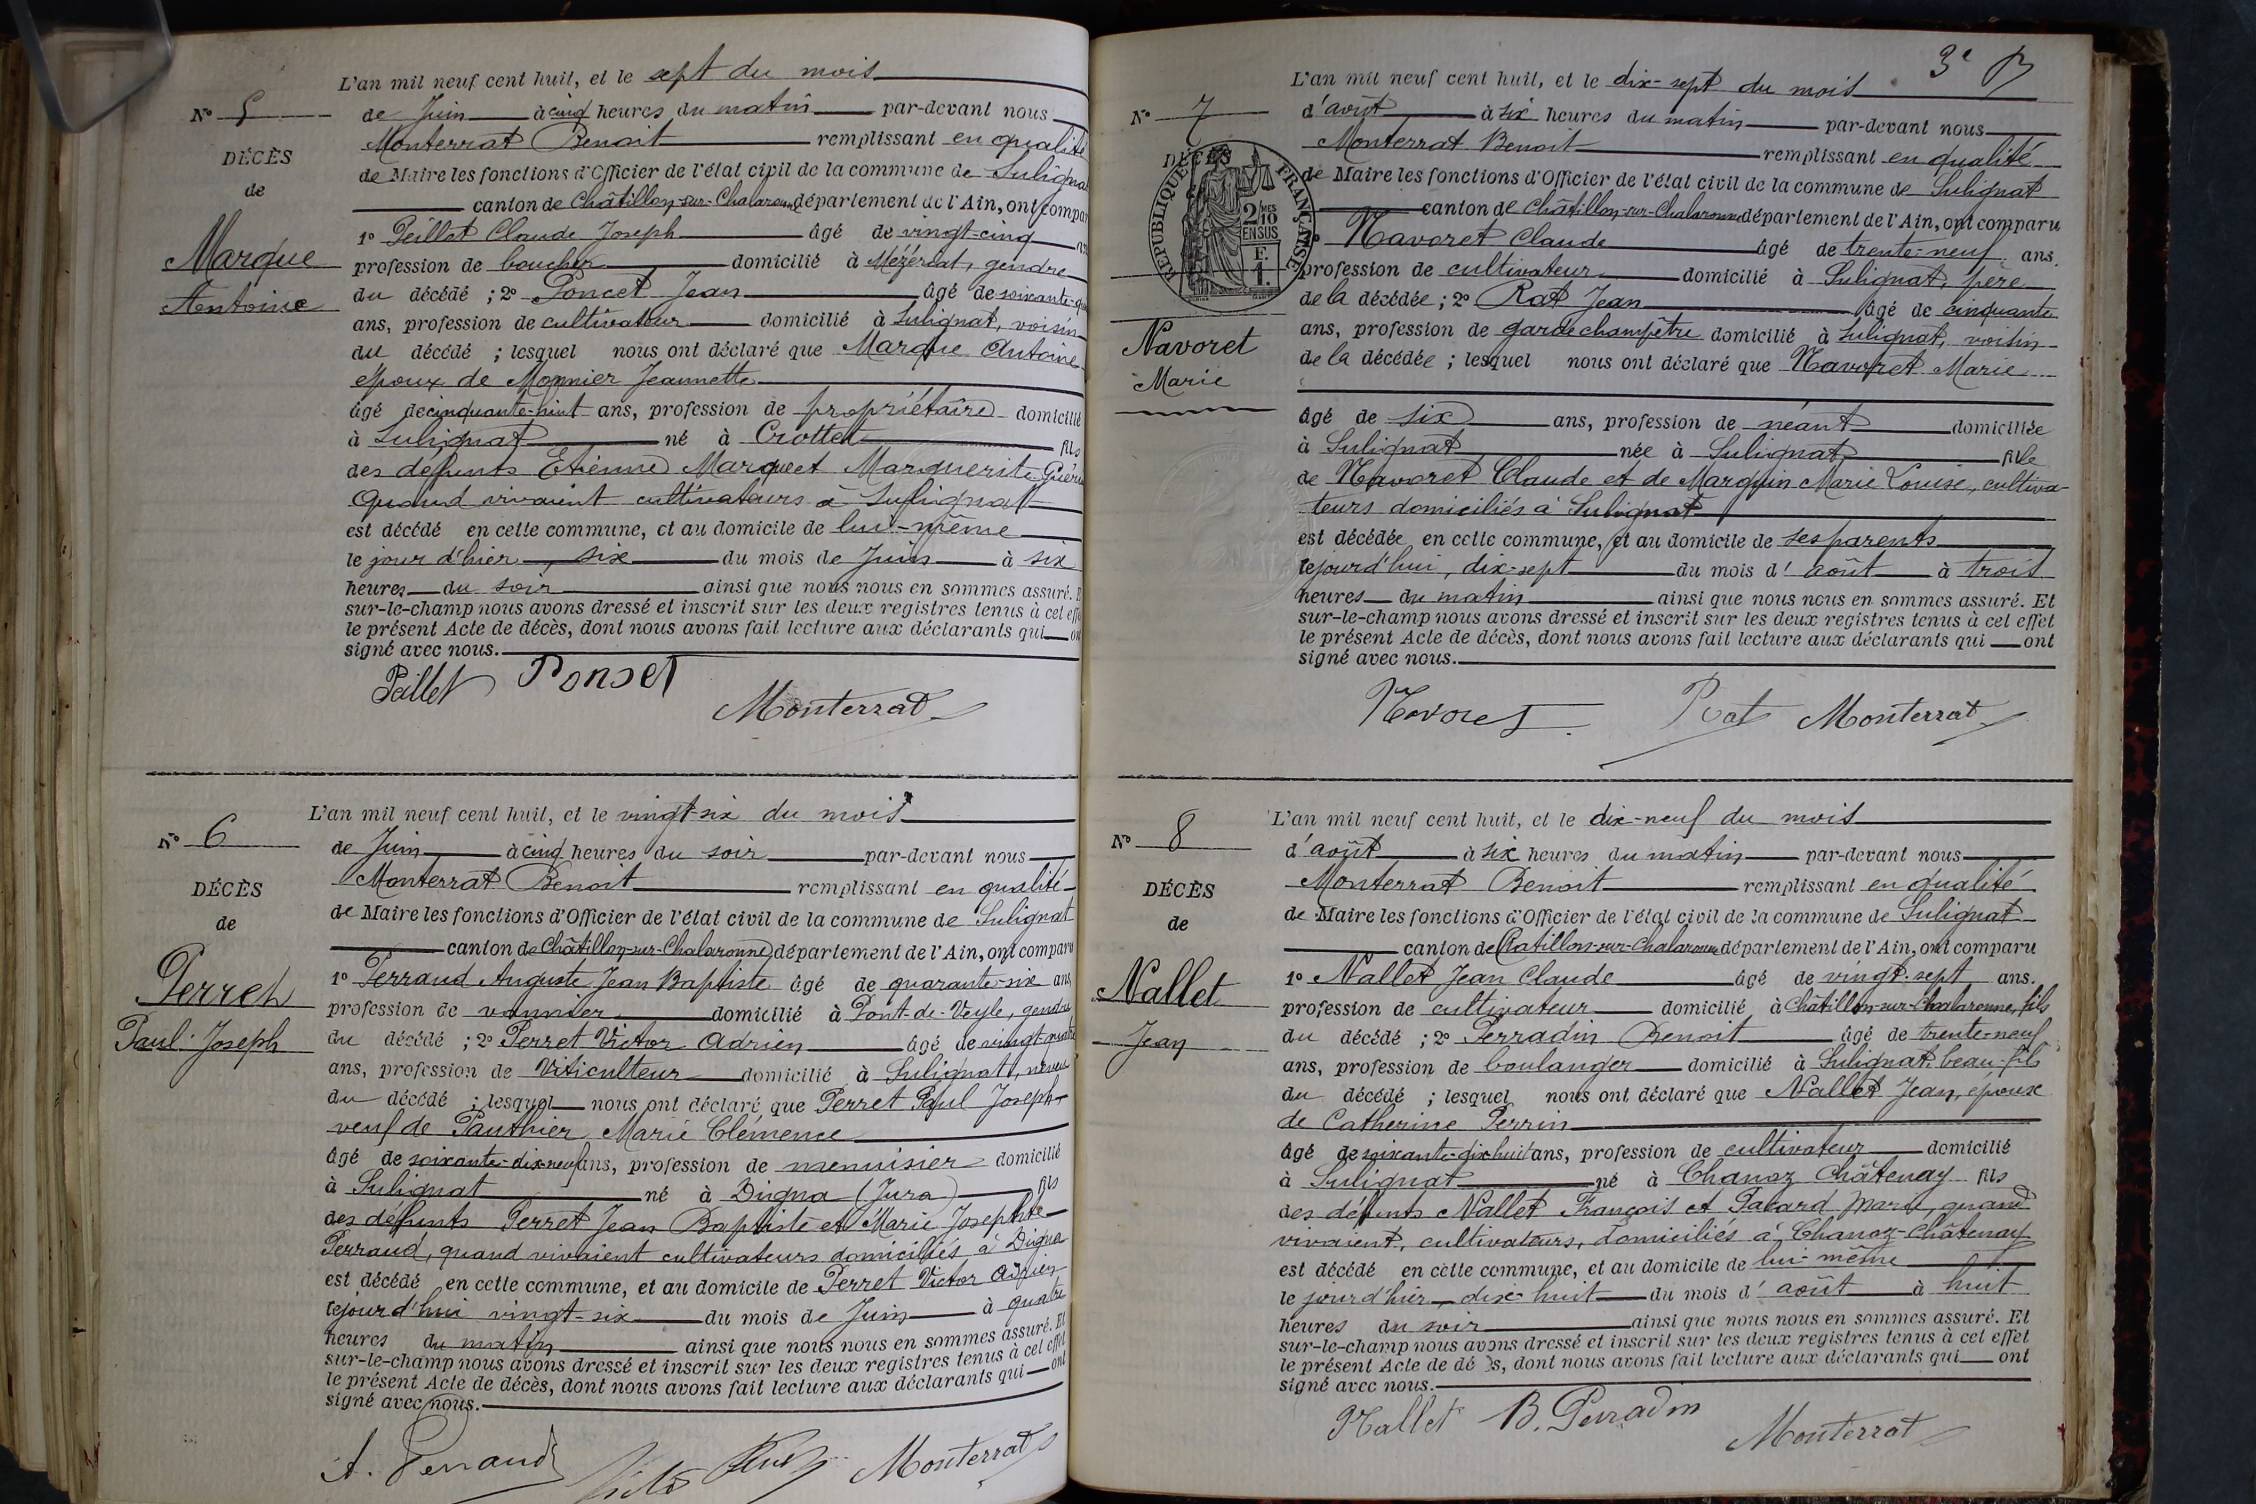 L'an mil neuf cent huit, et le sept du mois
N° 5
de Juin à cinq heures du matin par-devant nous
Monterrat Benoit remplissant en qualité
DÉCÈS
de Maire les fonctions d'Officier de l'état civil de la commune de Sulignat
de
canton de Châtillon-sur-Chalaronne département de l'Ain, ont compar
Marque
Antoine
1° Peillet Claude Joseph âgé de vingt-cinq ans
profession de boucher domicilié à Mézériat, gendre
du décédé ; 2° Poncet Jean âgé de soixante-
ans, profession de cultivateur domicilié à Sulignat, voisin
du décédé ; lesquel nous ont déclaré que Marque Antoine
époux de Monnier Jeannette
âgé de cinquante-huit ans, profession de propriétaire domicilié
à Sulignat né à Crottet fils
des défunts Etienne Marque et Marguerite Guérin
quand vivaient cultivateurs à Sulignat
est décédé en cette commune, et au domicile de lui-même
le jour d'hier, six du mois de Juin à six
heures du soir ainsi que nous nous en sommes assuré. E
sur-le-champ nous avons dressé et inscrit sur les deux registres tenus à cet effe
le présent Acte de décès, dont nous avons fait lecture aux déclarants qui ont
signé avec nous.
Peillet Ponset
Monterrat
L'an mil neuf cent huit, et le vingt-six du mois
N° 6
de Juin à cinq heures du soir par-devant nous
Monterrat Benoit remplissant en qualité
DÉCÈS
de Maire les fonctions d'Officier de l'état civil de la commune de Sulignat
de
canton de Châtillon-sur-Chalaronne département de l'Ain, ont comparu
Perret
Paul-Joseph
1° Perraud Auguste Jean Baptiste âgé de quarante-six ans
profession de vannier domicilié à Pont-de-Veyle, gendre
du décédé ; 2° Perret Victor Adrien âgé de vingt-quatre
ans, profession de Viticulteur domicilié à Sulignat, neveu
du décédé ; lesquel nous ont déclaré que Perret Paul Joseph
veuf de Pauthier Marie Clémence
âgé de soixante-dix-neuf ans, profession de menuisier domicilié
à Sulignat né à Digna (Jura) fils
des défunts Perret Jean Baptiste et Marie Josephte
Perraud, quand vivaient cultivateurs domiciliés à Digna
est décédé en cette commune, et au domicile de Perret Victor Adrien
le jour d'hui vingt-six du mois de Juin à quatre
heures du matin ainsi que nous nous en sommes assuré. Et
sur-le-champ nous avons dressé et inscrit sur les deux registres tenus à cet effet
le présent Acte de décès, dont nous avons fait lecture aux déclarants qui ont
signé avec nous.
A. Perraud Monterrat
3e
L'an mil neuf cent huit, et le dix-sept du mois
N° 7
d'août à six heures du matin par-devant nous
Monterrat Benoit remplissant en qualité
DÉCÈS
RÉPUBLIQUE FRANÇAISE
2/10 MES
EN SUS
F.
1.
de Maire les fonctions d'Officier de l'état civil de la commune de Sulignat
canton de Châtillon-sur-Chalaronne département de l'Ain, ont comparu
Navoret Claude âgé de trente-neuf ans.
profession de cultivateur domicilié à Sulignat, père
de la décédée ; 2° Rat Jean âgé de cinquante
Navoret
Marie
ans, profession de garde champêtre domicilié à Sulignat, voisin
de la décédée ; lesquel nous ont déclaré que Navoret Marie
âgé de six ans, profession de néant domiciliée
à Sulignat née à Sulignat fille
de Navoret Claude et de Marguin Marie Louise, cultiva-
teurs domiciliés à Sulignat
est décédée en cette commune, et au domicile de ses parents
le jour d'hui, dix-sept du mois d'août à trois
heures du matin ainsi que nous nous en sommes assuré. Et
sur-le-champ nous avons dressé et inscrit sur les deux registres tenus à cet effet
le présent Acte de décès, dont nous avons fait lecture aux déclarants qui ont
signé avec nous.
Navoret Rat Monterrat
L'an mil neuf cent huit, et le dix-neuf du mois
N° 8
d'août à six heures du matin par-devant nous
Monterrat Benoit remplissant en qualité
DÉCÈS
de Maire les fonctions d'Officier de l'état civil de la commune de Sulignat
de
canton de Chatillon-sur-Chalaronne département de l'Ain, ont comparu
Nallet
Jean
1° Nallet Jean Claude âgé de vingt-sept ans.
profession de cultivateur domicilié à Châtillon-sur-Chalaronne, fils
du décédé ; 2° Perradin Benoit âgé de trente-neuf
ans, profession de boulanger domicilié à Sulignat, beau-fils
du décédé ; lesquel nous ont déclaré que Nallet Jean, époux
de Catherine Perrin
âgé de soixante-dix-huit ans, profession de cultivateur domicilié
à Sulignat né à Chanoz Châtenay fils
des défunts Nallet François et Pacard Marie, quand
vivaient, cultivateurs, domiciliés à Chanoz-Châtenay
est décédé en cette commune, et au domicile de lui-même
le jour d'hier, dix-huit du mois d'août à huit
heures du soir ainsi que nous nous en sommes assuré. Et
sur-le-champ nous avons dressé et inscrit sur les deux registres tenus à cet effet
le présent Acte de dé s, dont nous avons fait lecture aux déclarants qui ont
signé avec nous.
Nallet B. Perradin
Monterrat